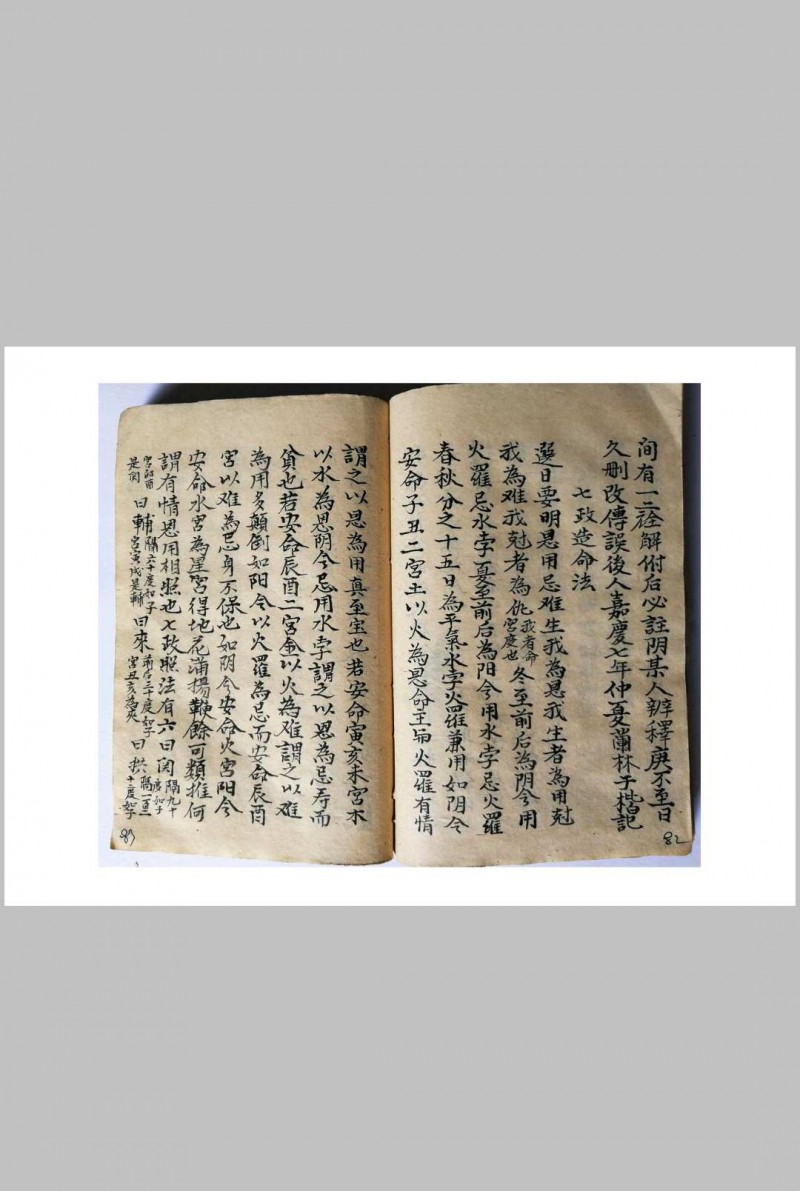 间有一二詮解附后必註阴某人辨釋庶不至日
久删改傳誤後人嘉慶七年仲夏蘭林子楷記
七政造命法
選日要明恩用忌难生我為恩我生者為用尅
我為难我尅者為仇我者命宮度也冬至前后為阴令用
火羅忌水孛夏至前后為阳令用水孛忌火羅
春秋分之十五日為平氣水孛火羅兼用如阴令
安命子丑二宮土以火為恩命主而火羅有情
82
謂之以恩為用真至宝也若安命寅亥未宮木
以水為恩阴令忌用水孛謂之以恩為忌寿而
貧也若安命辰酉二宮金以火為难謂之以难
為用多顛倒如阳令以火羅為忌而安命辰酉
宮以难為忌身不保也如阴令安命火宮阳令
安命水宮為星宮得地花滿揚鞭餘可類推何
謂有情恩用相照也七政照法有六曰関隔九十度如子
宮卯酉是関曰輔隔六十度如子宮寅戌是輔曰來前后三十度如子宮丑亥為夾曰拱隔一百二十度如子
83